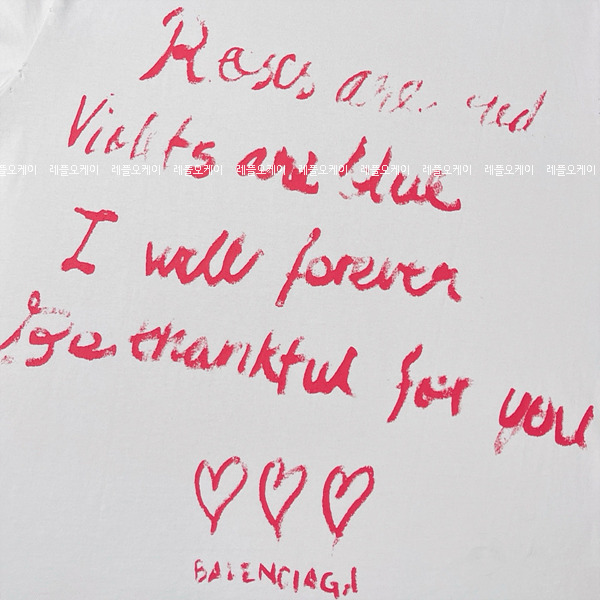 Roses are red
Violets are blue
레플오케이 레플오케이 레플오케이 레플오케이 레플오케이 레플오케이 레플오케이 레플오케이 레플오케이 레플오케이
I will forever
Be thankful for you
BALENCIAGA